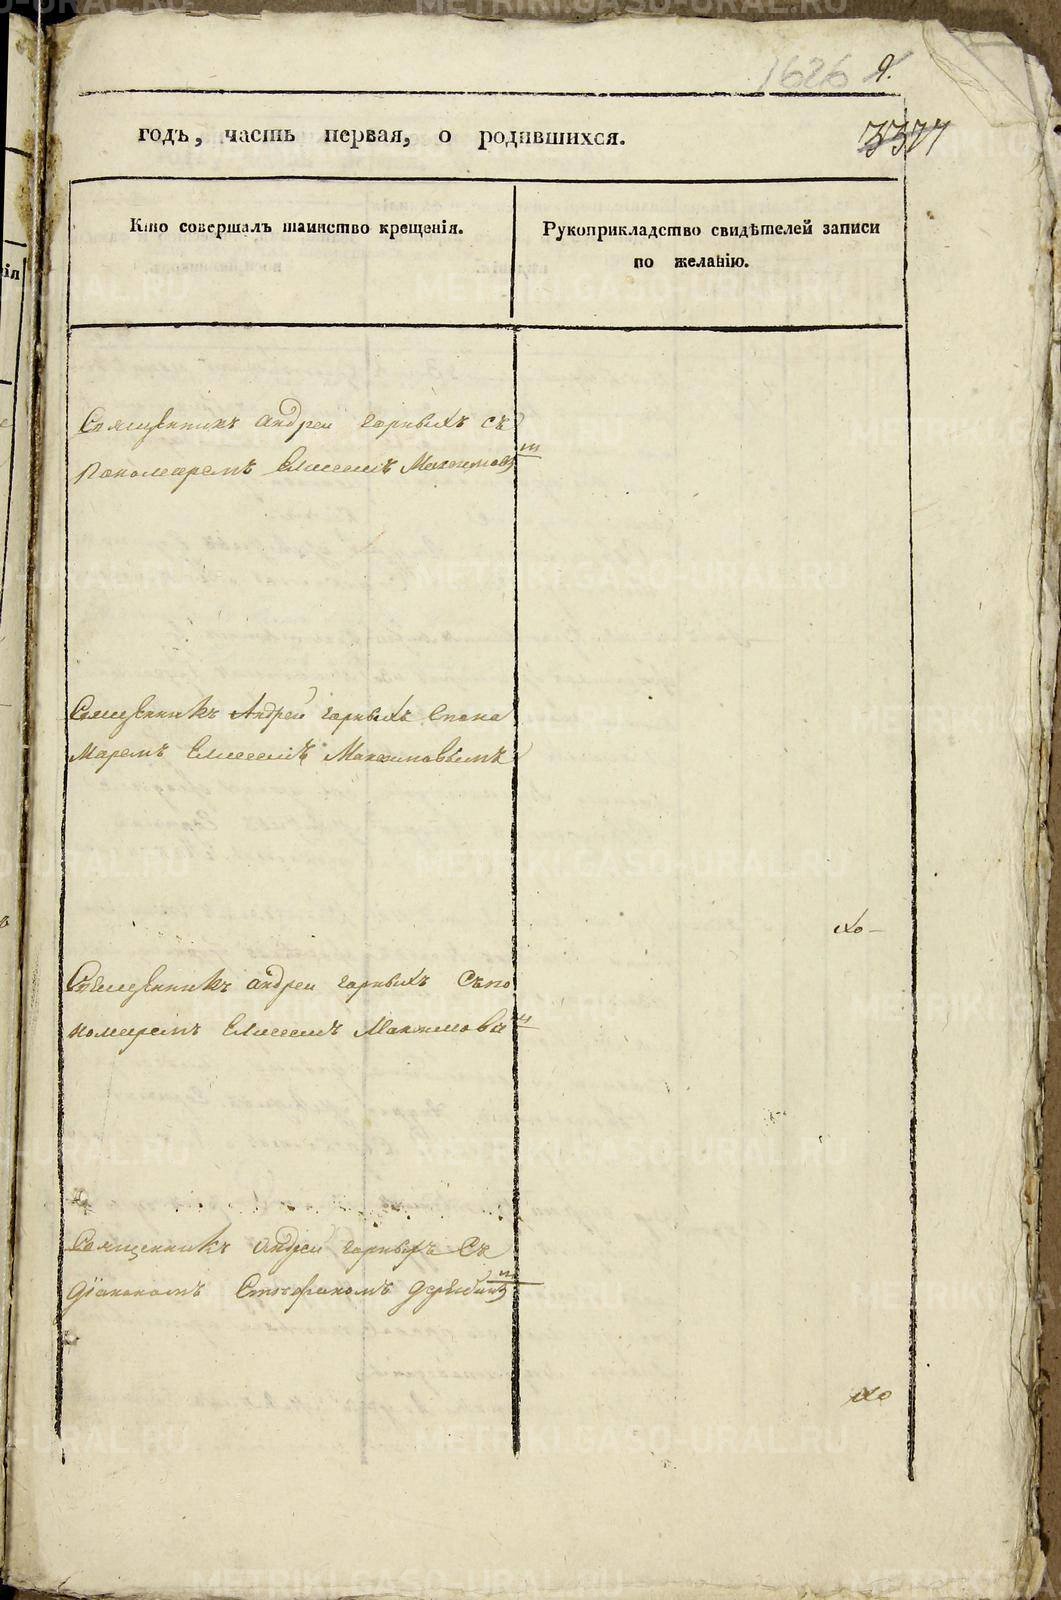 METRIKI.GASO-URAL.RU
1626 9.
годъ, часть первая, о родившихся.
3377
Кто совершалъ таинство крещенія.
Рукоприкладство свидѣтелей записи
по желанію.
Священникъ Андреи Горныхъ съ
Пономаремъ Елисеемъ Максимовым
Священникъ Андрей Горныхъ Споно
Маремъ Елисеемъ Максимовымъ
Священникъ Андреи Горныхъ Съпо
номаремъ Елисеемъ Максимовым
Священникъ Андрей Горныхъ Съ
Діакономъ Стефаномъ Дерябиным